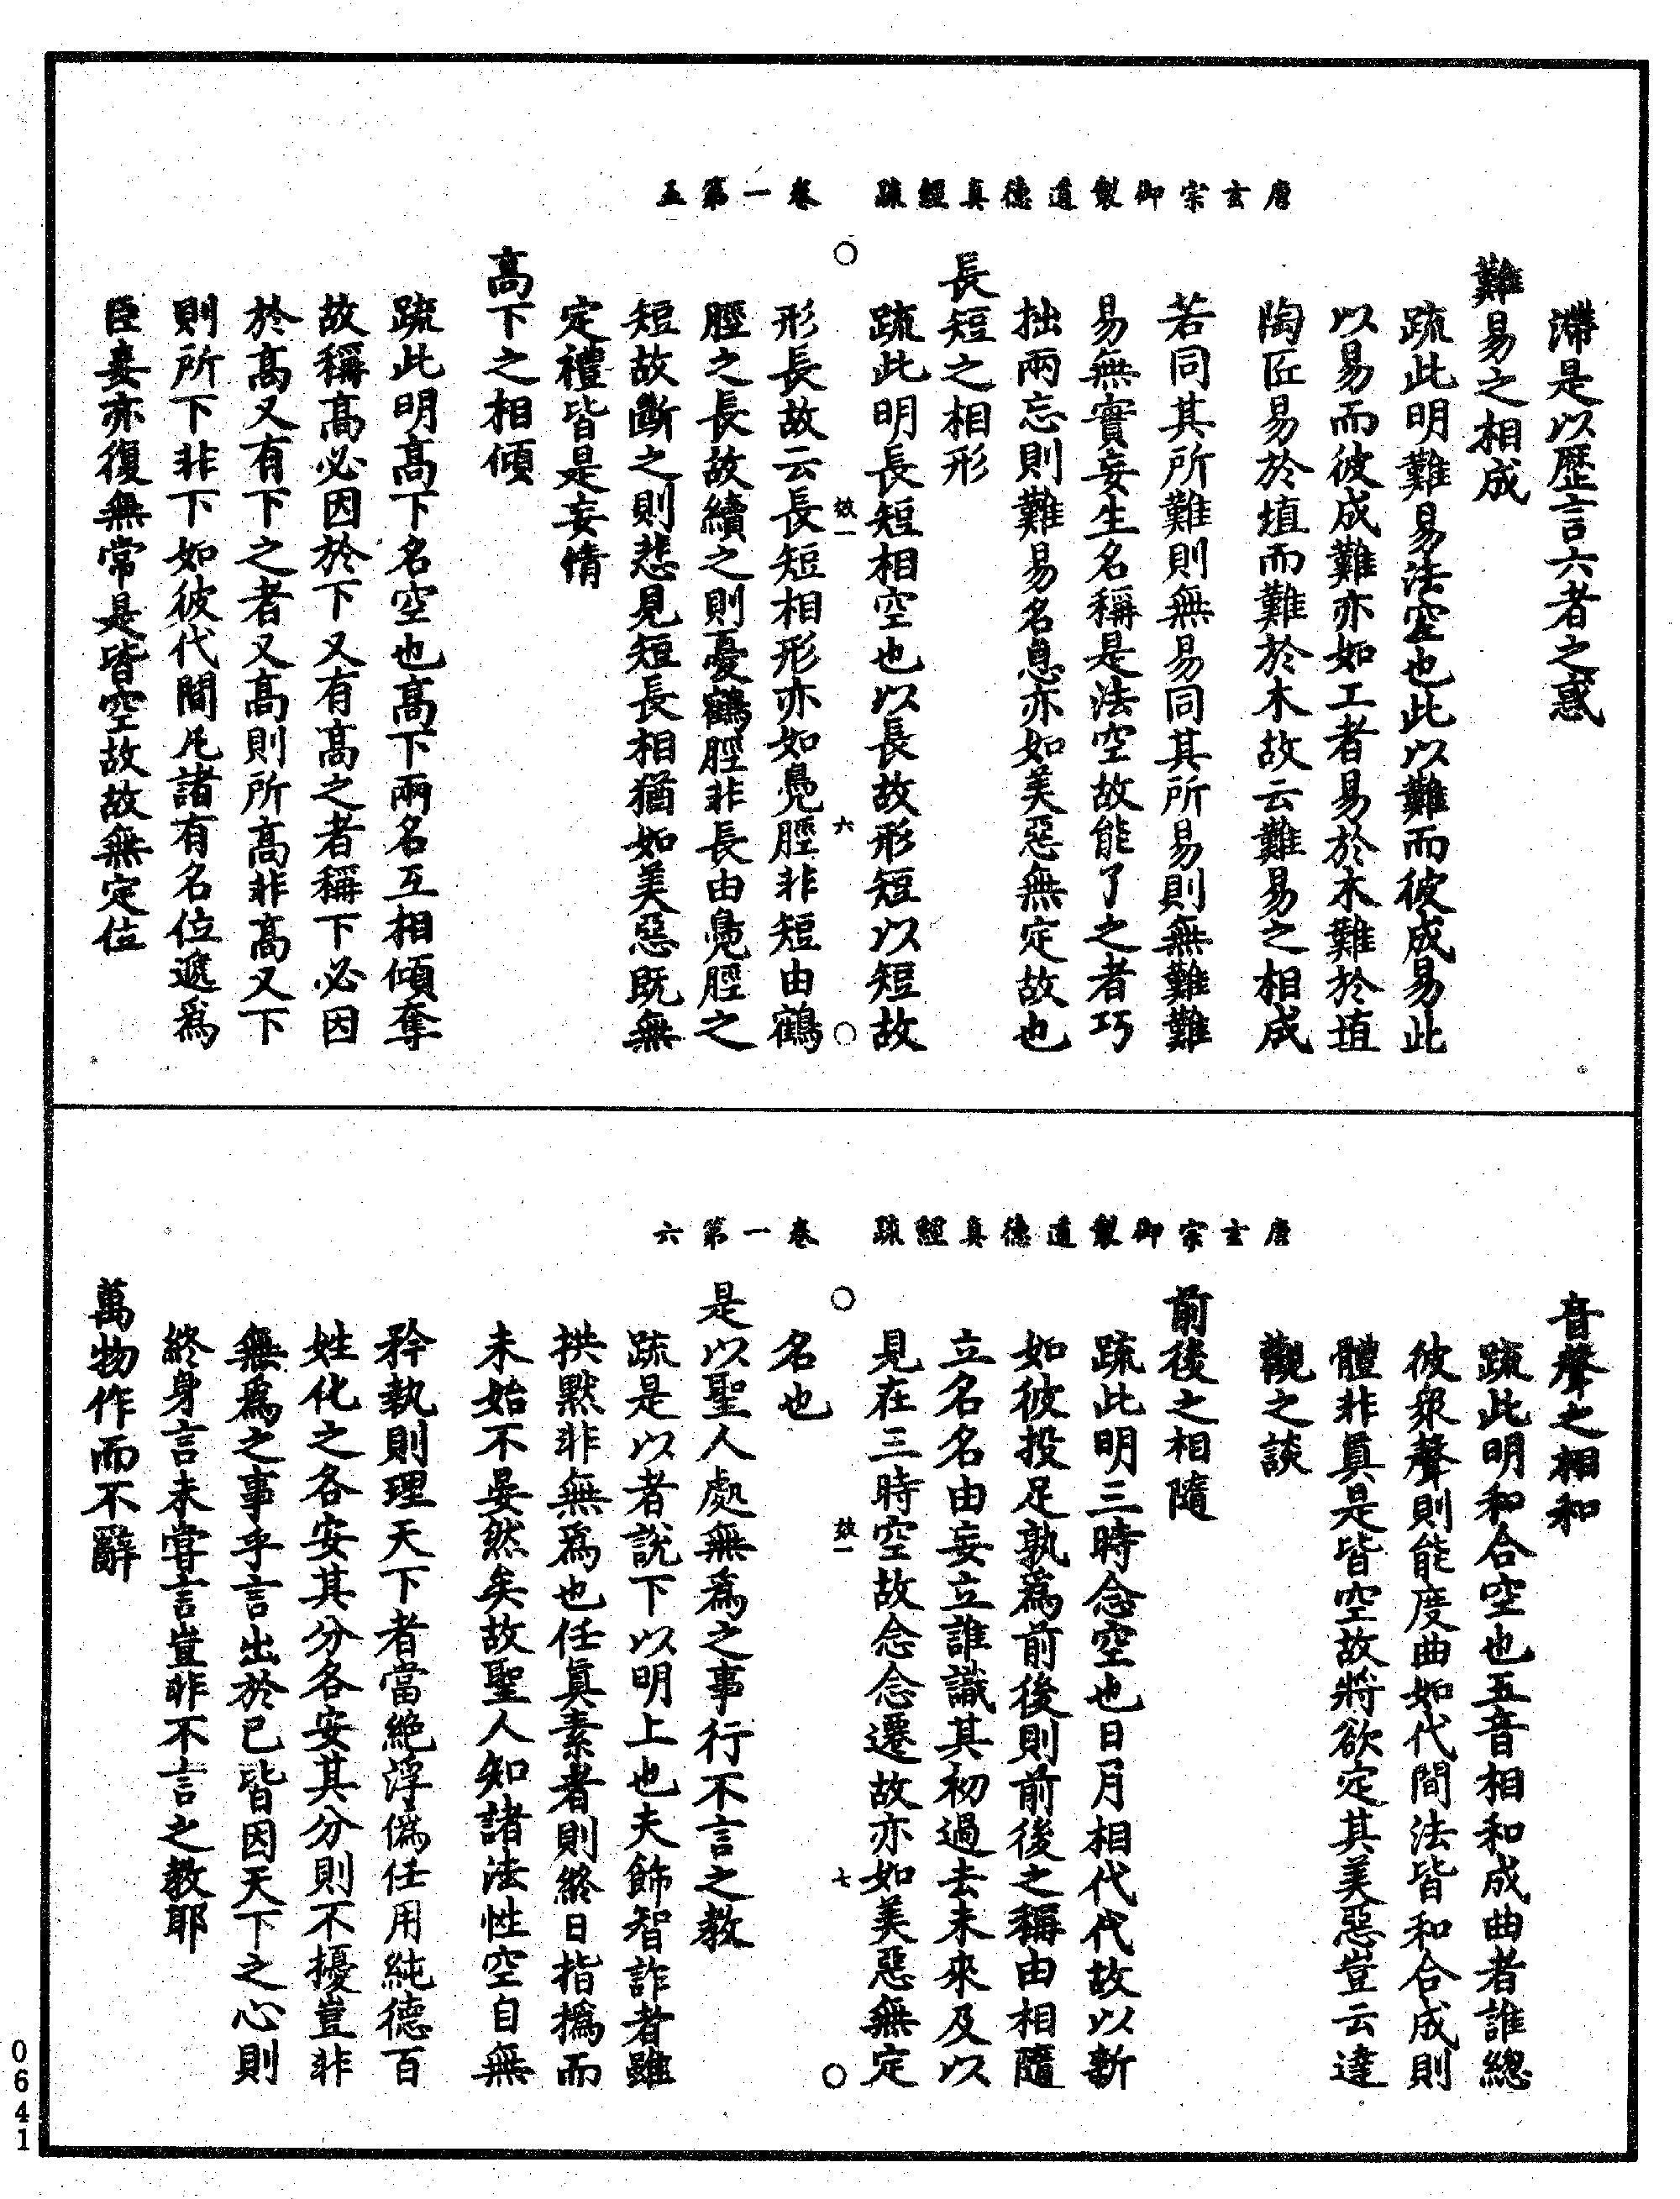 唐玄宗御製道德真經疏　卷一第五
滯是以歷言六者之惑
難易之相成
疏此明難易法空也此以難而彼成易此
以易而彼成難亦如工者易於木難於埴
陶匠易於埴而難於木故云難易之相成
若同其所難則無易同其所易則無難難
易無實妄生名稱是法空故能了之者巧
拙兩忘則難易名息亦如美惡無定故也
長短之相形
疏此明長短相空也以長故形短以短故
效一　六
形長故云長短相形亦如鳧脛非短由鶴
脛之長故續之則憂鶴脛非長由鳧脛之
短故斷之則悲見短長相猶如美惡既無
定禮皆是妄情
高下之相傾
疏此明高下名空也高下兩名互相傾奪
故稱高必因於下又有高之者稱下必因
於高又有下之者又高則所高非高又下
則所下非下如彼代間凡諸有名位遞為
臣妾亦復無常是皆空故故無定位
唐玄宗御製道德真經疏　卷一第六
音聲之相和
疏此明和合空也五音相和成曲者誰總
彼衆聲則能度曲如代間法皆和合成則
體非真是皆空故將欲定其美惡豈云達
觀之談
前後之相隨
疏此明三時念空也日月相代代故以新
如彼投足孰為前後則前後之稱由相隨
立名名由妄立誰識其初過去未來及以
見在三時空故念念遷故亦如美惡無定
效一　七
名也
是以聖人處無為之事行不言之教
疏是以者說下以明上也夫飾智詐者雖
拱默非無為也任真素者則終日指撝而
未始不晏然矣故聖人知諸法性空自無
矜執則理天下者當絕浮偽任用純德百
姓化之各安其分各安其分則不擾豈非
無為之事乎言出於已皆因天下之心則
終身言未嘗言豈非不言之教耶
萬物作而不辭
0641